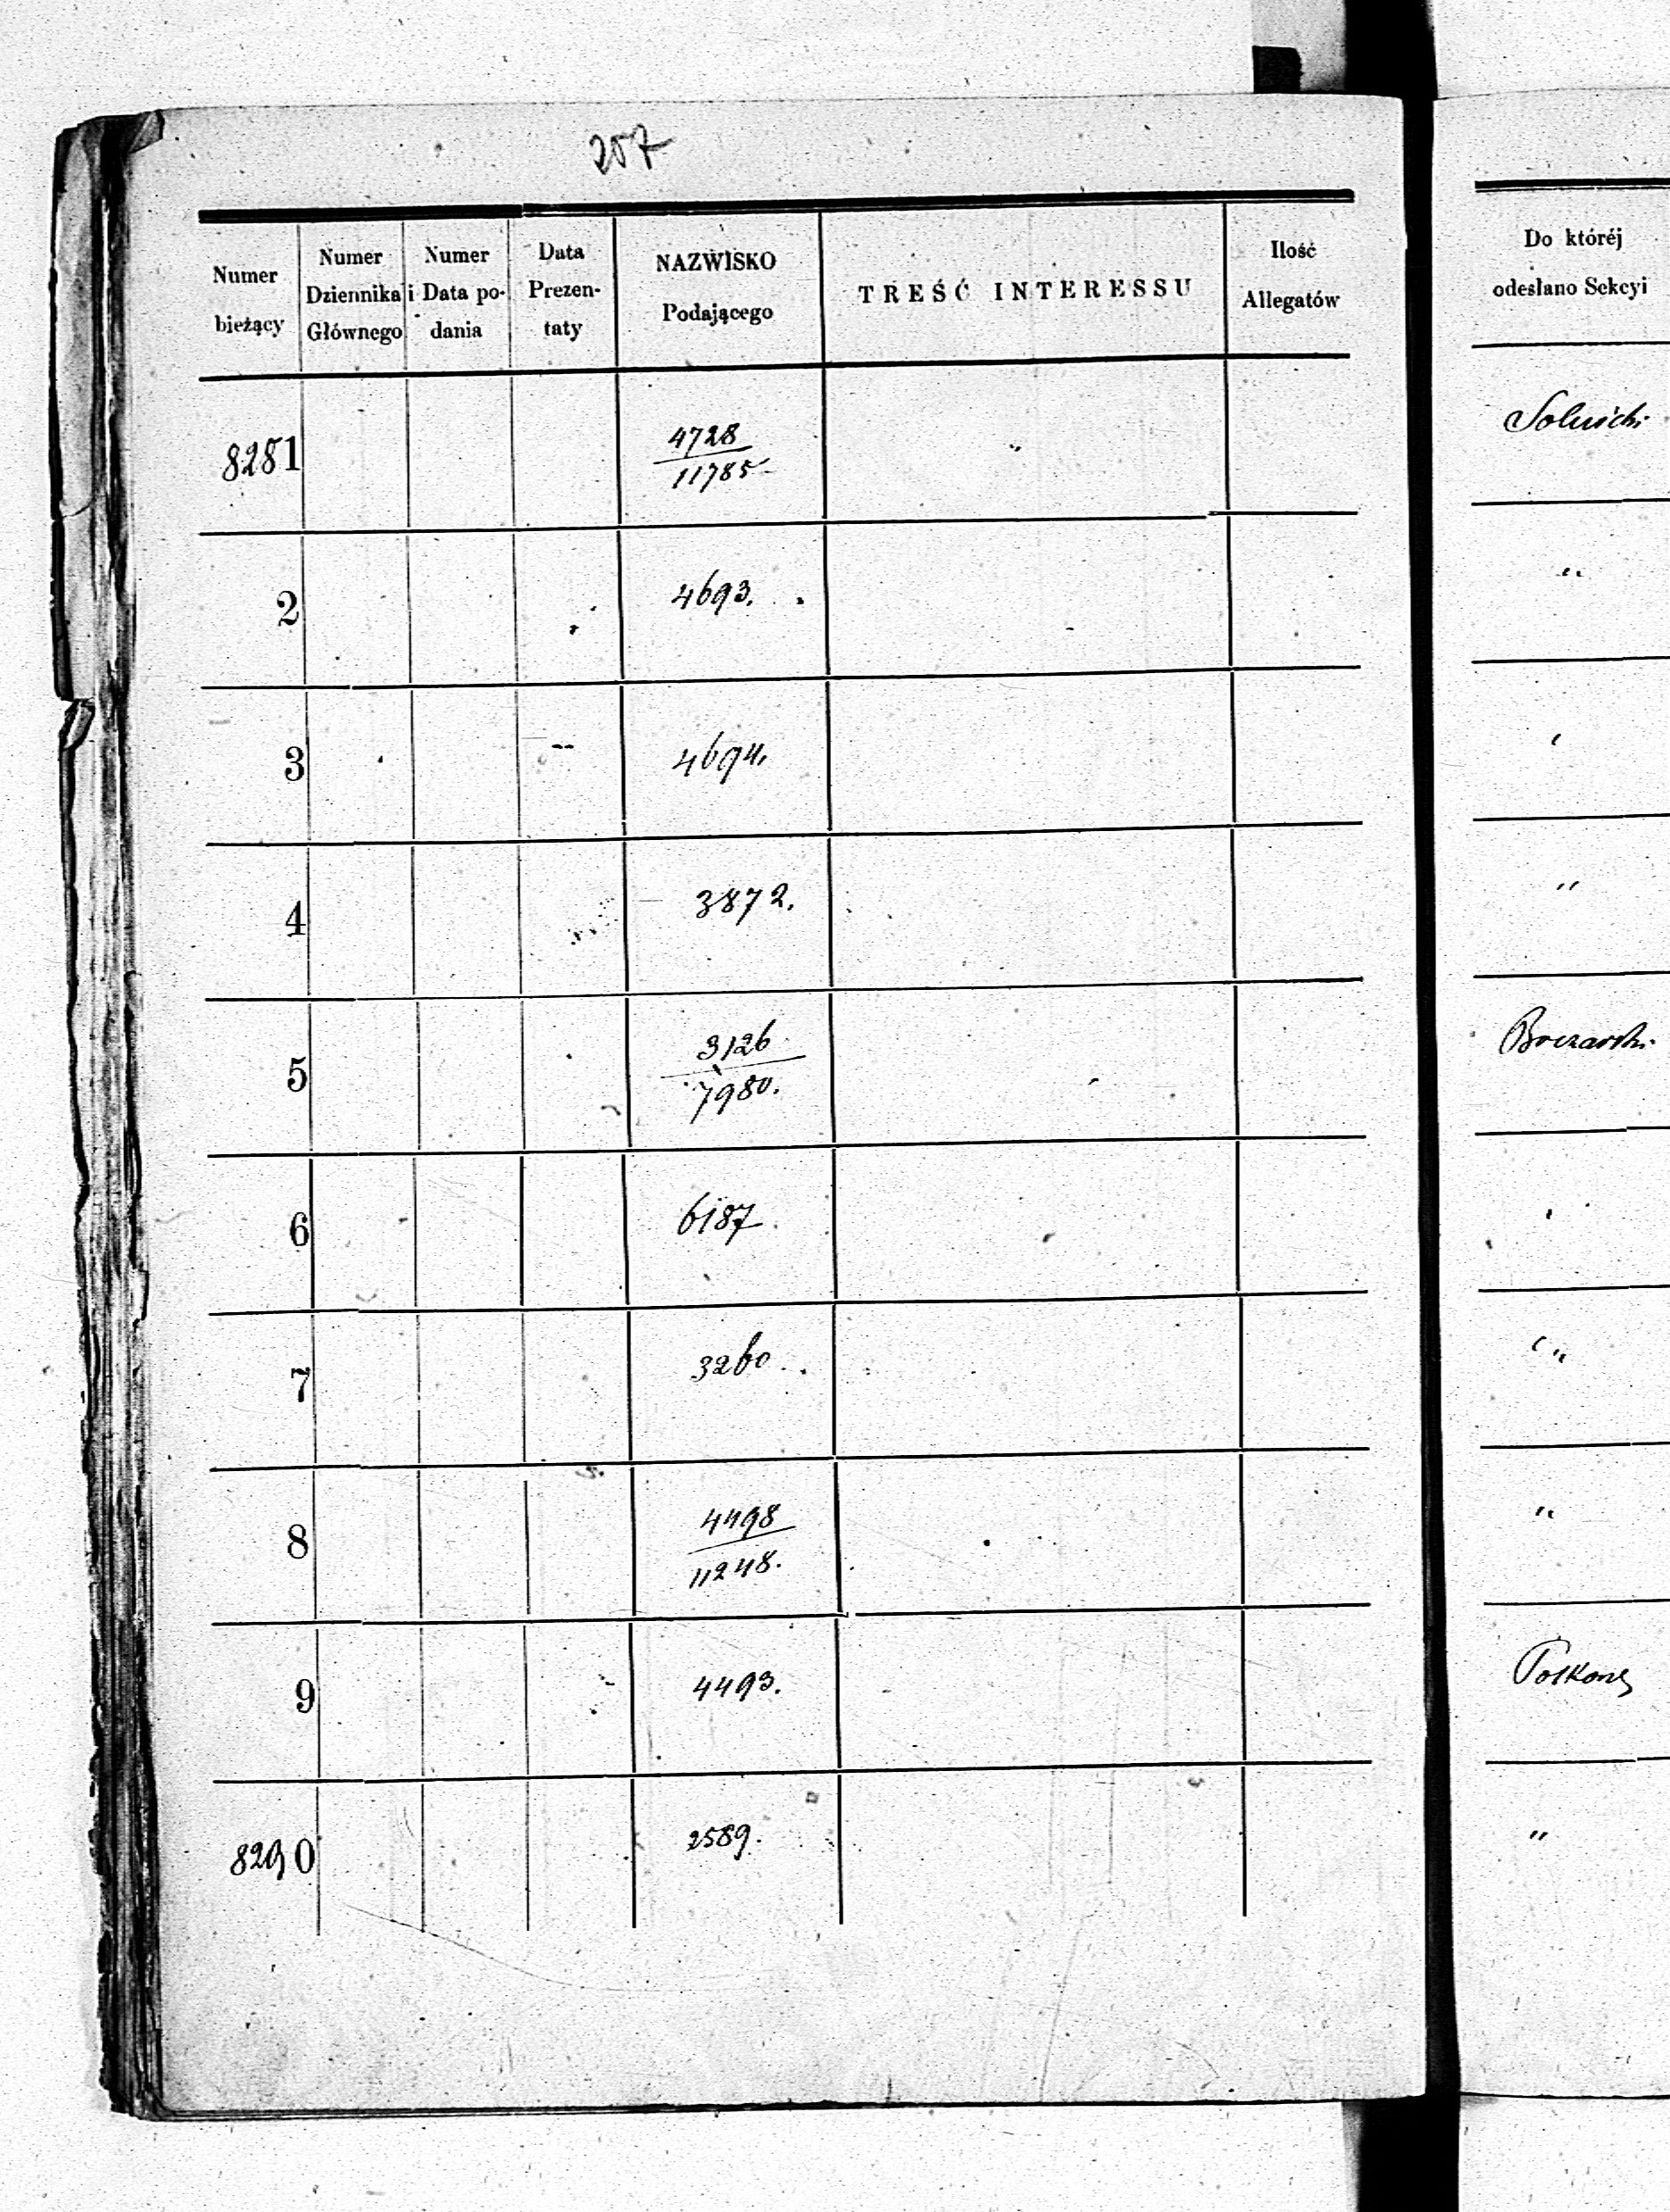 257
Numer bieżący
Numer Dziennika Głównego
Numer i Data podania
Data Prezentaty
NAZWISKO Podającego
TREŚĆ INTERESSU
Ilość Allegatów
Do któréj odesłano Sekcyi
8281 4728
11785
2 4693. "
3 4694.
4 3872. "
5 3126
7980.
6 6187
7 3260 "
8 4498
11248. "
9 4493.
8290 2589. "